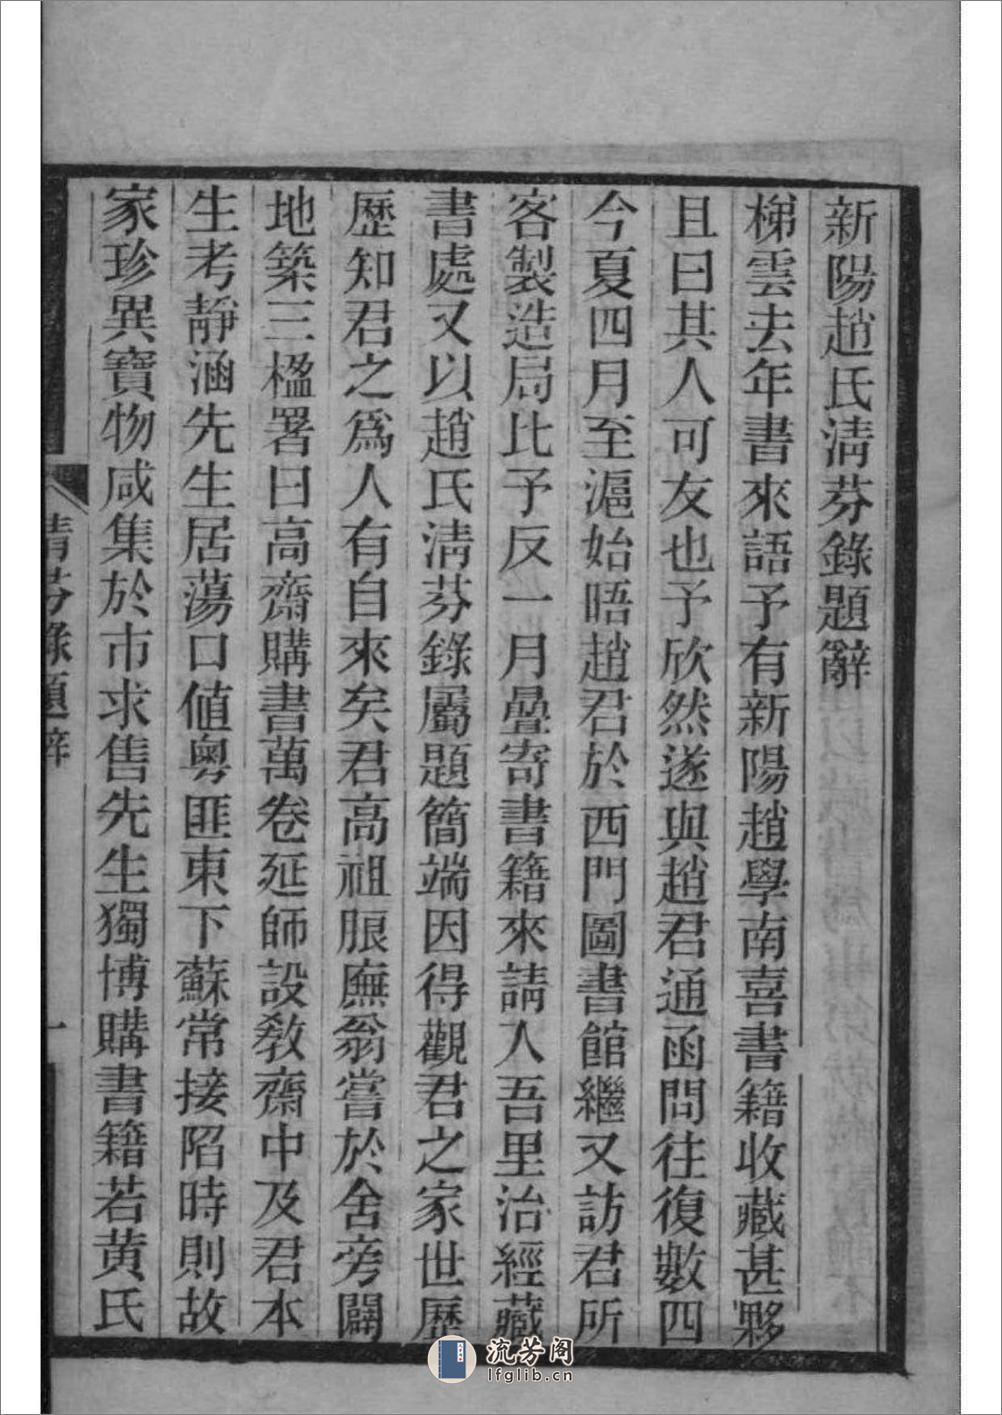 新陽趙氏淸芬錄題辭
梯雲去年書來語予有新陽趙學南喜書籍收藏甚夥
且曰其人可友也予欣然遂與趙君通函問往復數四
今夏四月至滬始晤趙君於西門圖書館繼又訪君所
客製造局比予反一月疊寄書籍來請入吾里治經藏
書處又以趙氏淸芬錄屬題簡端因得觀君之家世歷
歷知君之爲人有自來矣君高祖脤廡翁嘗於舍旁闢
地築三楹署曰高齋購書萬卷延師設敎齋中及君本
生考靜涵先生居蕩口値粵匪東下蘇常接陷時則故
家珍異寶物咸集於市求售先生獨博購書籍若黄氏
淸芬錄題辭
一
流芳阁
lfglib.cn